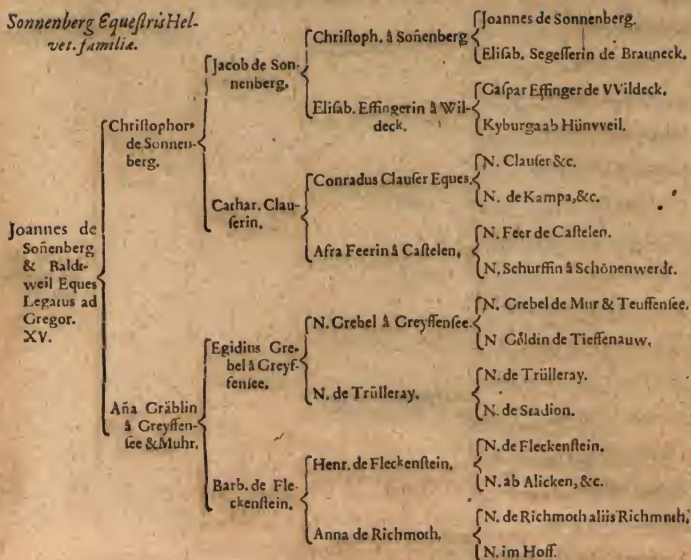 Sonnenberg Equeſtris Hel-
vet. familiæ.
Joannes de
Soñenberg
& Baldt-
weil Eques
Legatus ad
Gregor.
XV.
Chriſtophor⁹
de Sonnen-
berg.
Aña Gräblin
â Greyffen-
ſee & Muhr.
Jacob de Son-
nenberg.
Cathar. Clau-
ſerin.
Egidius Gre-
bel â Greyf-
fenſee.
Barb. de Fle-
ckenſtein.
Chriſtoph. â Soñenberg
Eliſab. Effingerin â Wil-
deck.
Conradus Clauſer Eques.
Afra Feerin â Caſtelen.
N. Grebel â Greyffenſee.
N. de Trülleray.
Henr. de Fleckenſtein.
Anna de Richmoth.
Joannes de Sonnenberg.
Eliſab. Segeſſerin de Brauneck.
Caſpar Effinger de VVildeck.
Kyburga ab Hünvveil.
N. Clauſer &c.
N. de Kampa, &c.
N. Feer de Caſtelen.
N. Schurffin â Schönenwerdt.
N. Grebel de Mur & Teuffenſee.
N Göldin de Tieffenauw.
N. de Trülleray.
N. de Stadion.
N. de Fleckenſtein.
N. ab Alicken, &c.
N. de Richmoth aliis Richmuth.
N. im Hoff.